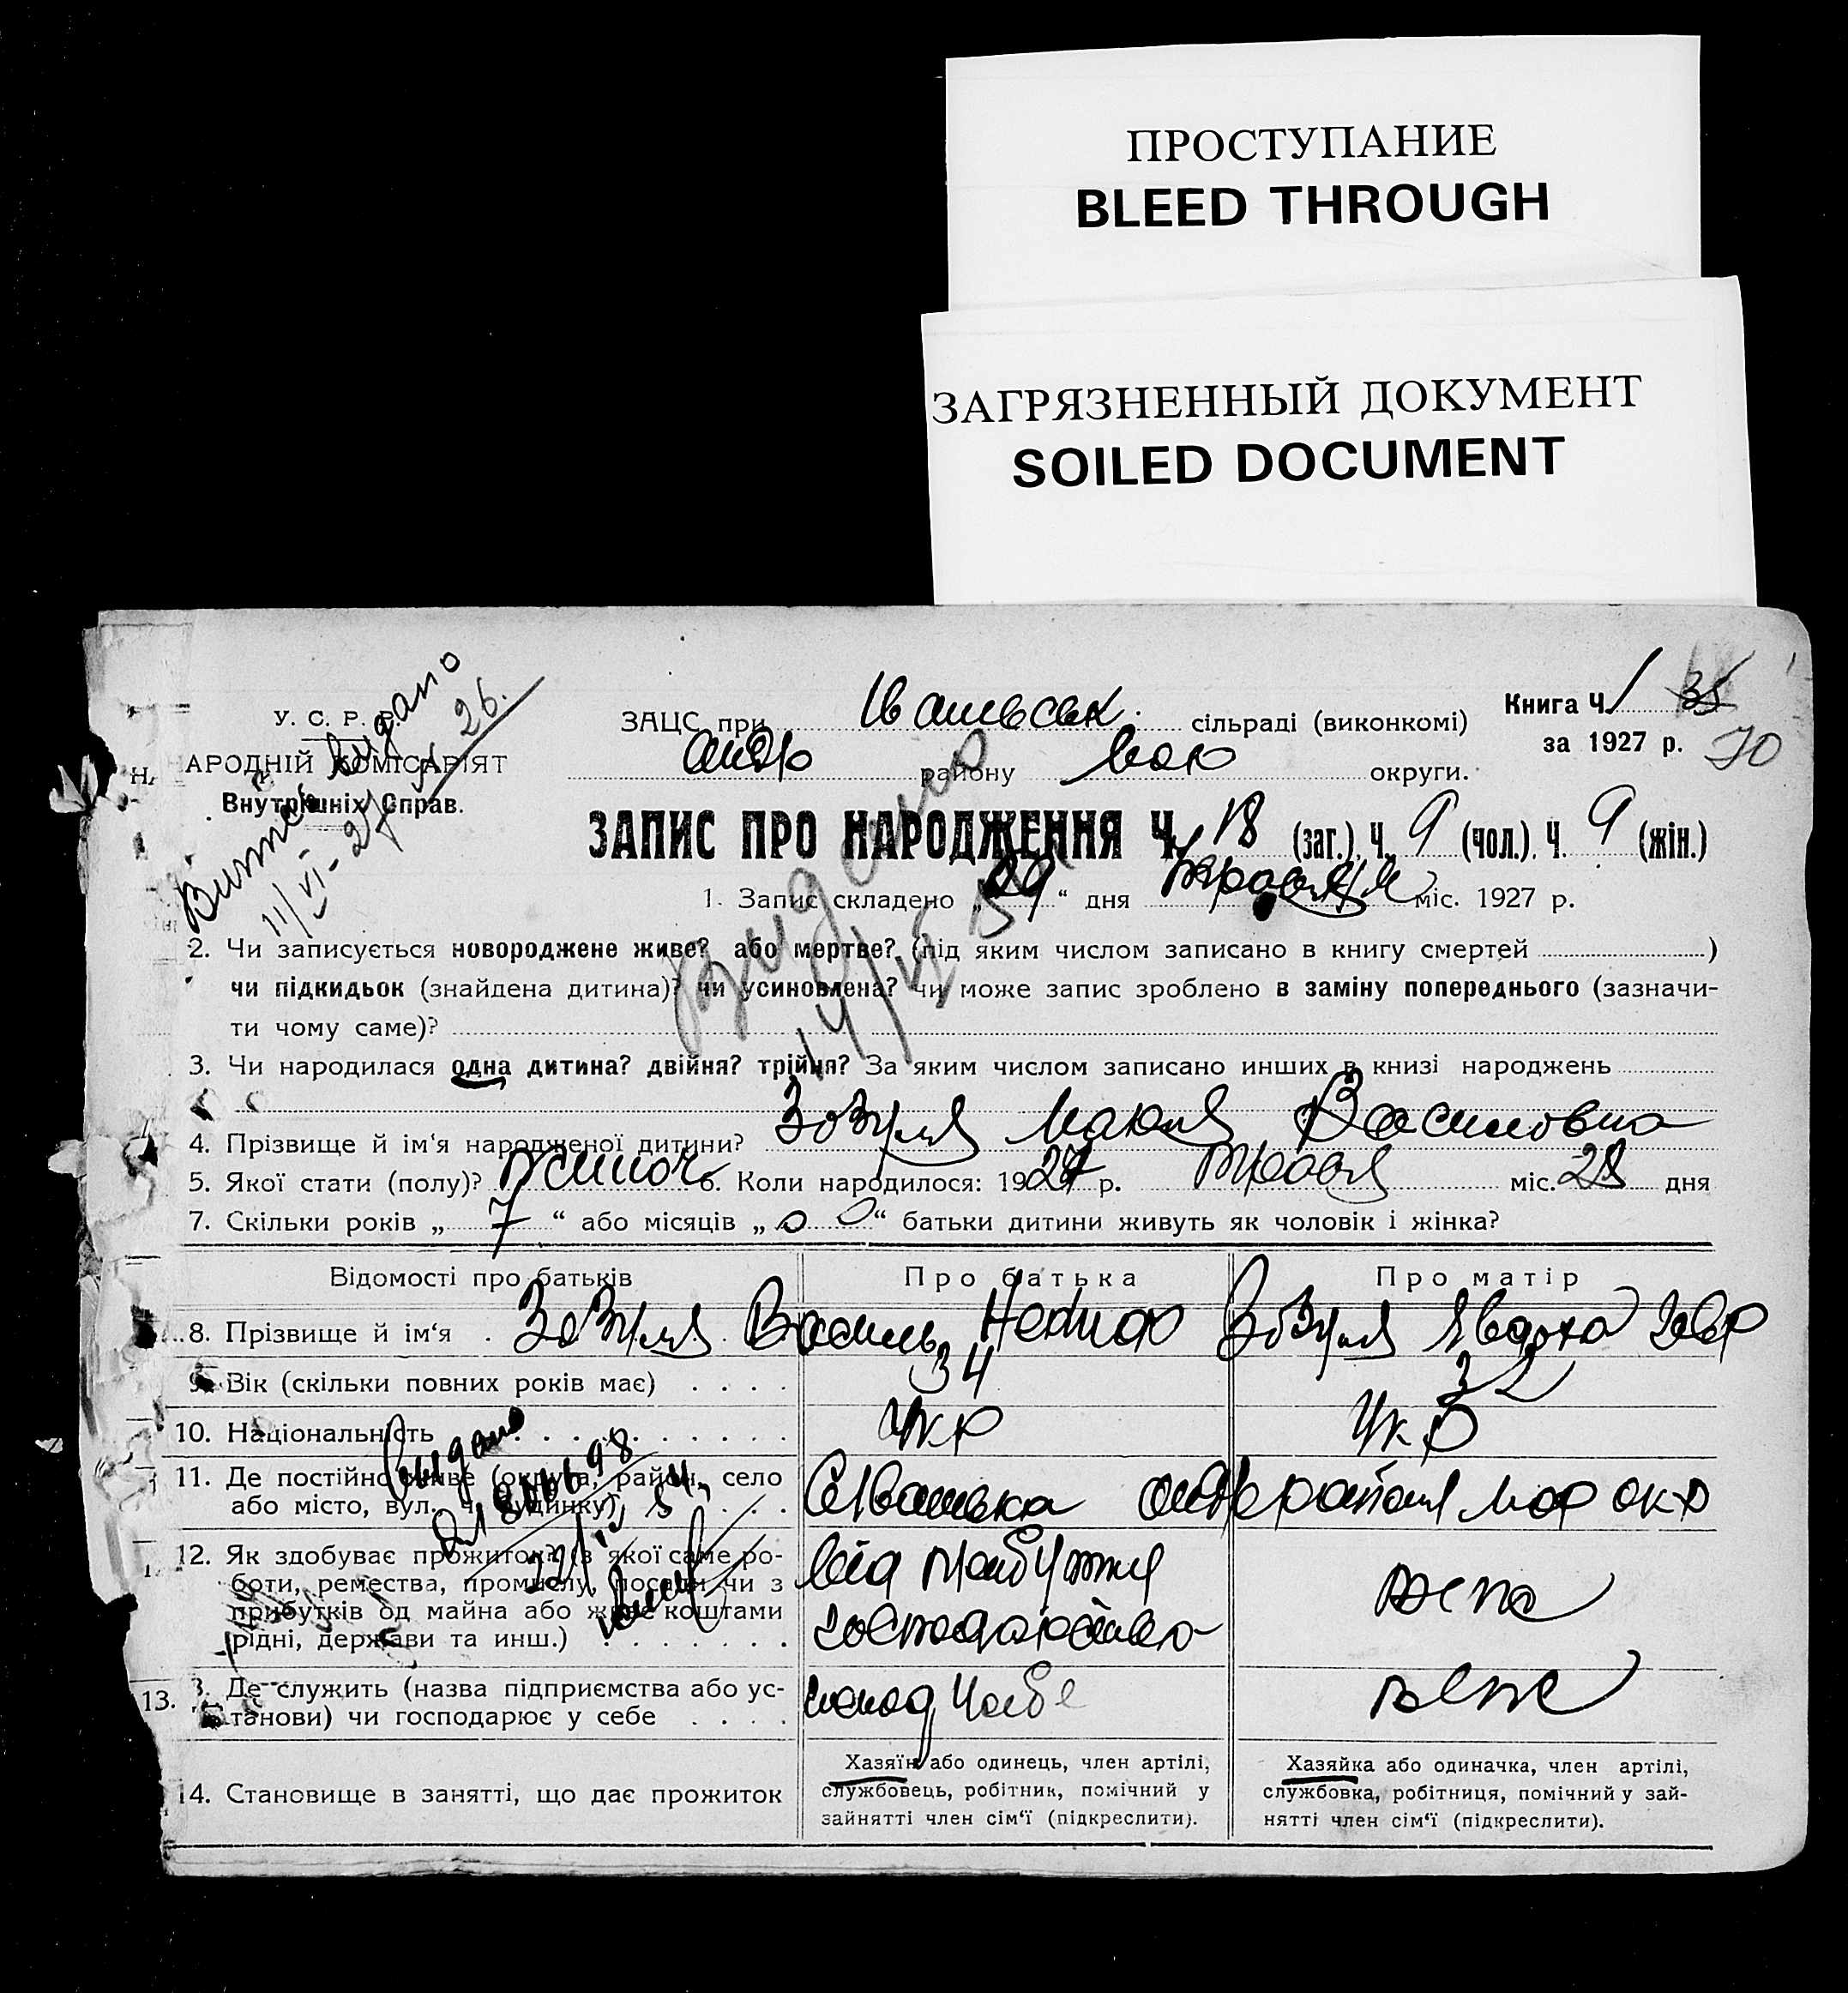 ПРОСТУПАНИЕ
BLEED THROUGH
ЗАГРЯЗНЕННЫЙ ДОКУМЕНТ
SOILED DOCUMENT
Витяг видано
11/VI-27 26.
У. С. Р. Р.
НАРОДНІЙ КОМІСАРІЯТ
Внутрішніх Справ.
ЗАЦС при Івашевськ. сільраді (виконкомі)
району округи.
Книга Ч. 1 35
за 1927 р. 70
ЗАПИС ПРО НАРОДЖЕННЯ Ч. 18 (заг.), Ч. 9 (чол.), Ч. 9 (жін.)
1. Запис складено „29“ дня Травня міс. 1927 р.
Видано
2. Чи записується новороджене живе? або мертве? (під яким числом записано в книгу смертей )
чи підкидьок (знайдена дитина)? чи усиновлена? чи може запис зроблено в заміну попереднього (зазначи-
ти чому саме)?
3. Чи народилася одна дитина? двійня? трійня? За яким числом записано инших в книзі народжень
4. Прізвище й ім‘я народженої дитини? Зозуля Василовна
5. Якої стати (полу)? жиноч 6. Коли народилося: 1927 р. Травня міс. 28 дня
7. Скільки років „ 7 “ або місяців „ 0 0 “ батьки дитини живуть як чоловік і жінка?
Відомості про батьків Про батька Про матір
8. Прізвище й ім‘я Зозуля Василь Зозуля Явдоха
9. Вік (скільки повних років має) 34 32
10. Національність Укр Укр
11. Де постійно живе (округа, район, село
або місто, вул., ч. будинку)
Видано
22/IV 54
12. Як здобуває прожиток? (з якої саме ро-
боти, ремества, промислу, посади чи з
прибутків од майна або живе коштами
рідні, держави та инш.)
від
13. Де служить (назва підприємства або ус-
танови) чи господарює у себе
14. Становище в занятті, що дає прожиток
Хазяїн або одинець, член артілі,
службовець, робітник, помічний у
зайнятті член сім‘ї (підкреслити).
Хазяйка або одиначка, член артілі,
службовка, робітниця, помічний у зай-
нятті член сім‘ї (підкреслити).